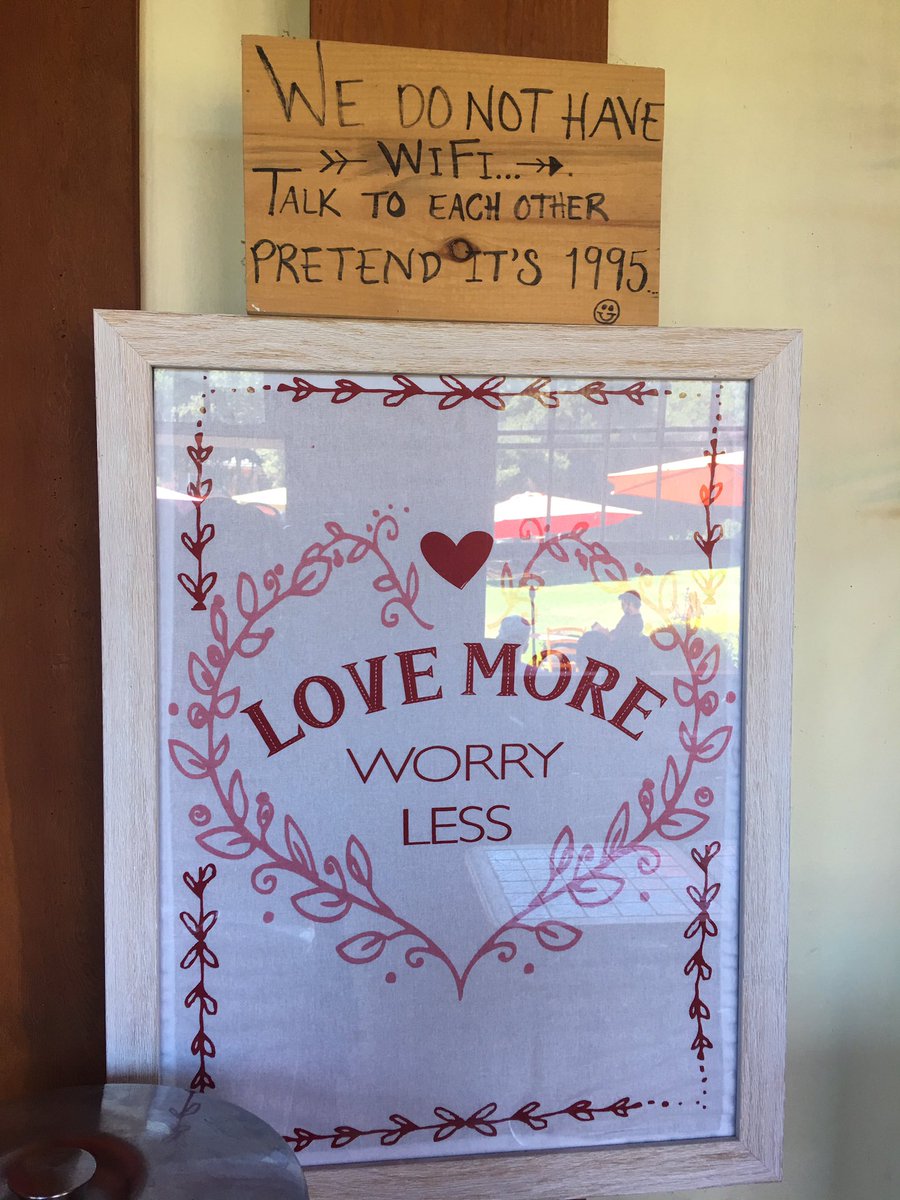 WE DO NOT HAVE
WIFI...
TALK TO EACH OTHER
PRETEND IT'S 1995.
LOVE MORE
WORRY
LESS